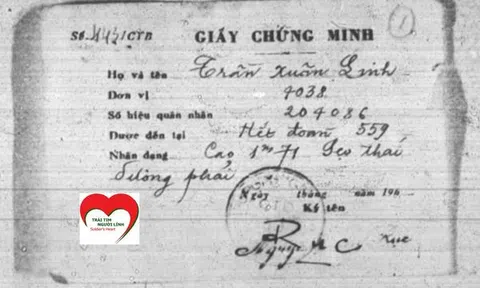 Số. /CTB GIẤY CHỨNG MINH 1
Họ và tên Trần Xuân Linh
Đơn vị 4038
Số hiệu quân nhân 204086
Được đến tại Hết đoàn 559
Nhân dạng Cao 1m71 Sẹo thái
dương phải
Ngày tháng năm 196
Ký tên
TRÁI TIM
NGƯỜI LÍNH
Soldier's Heart